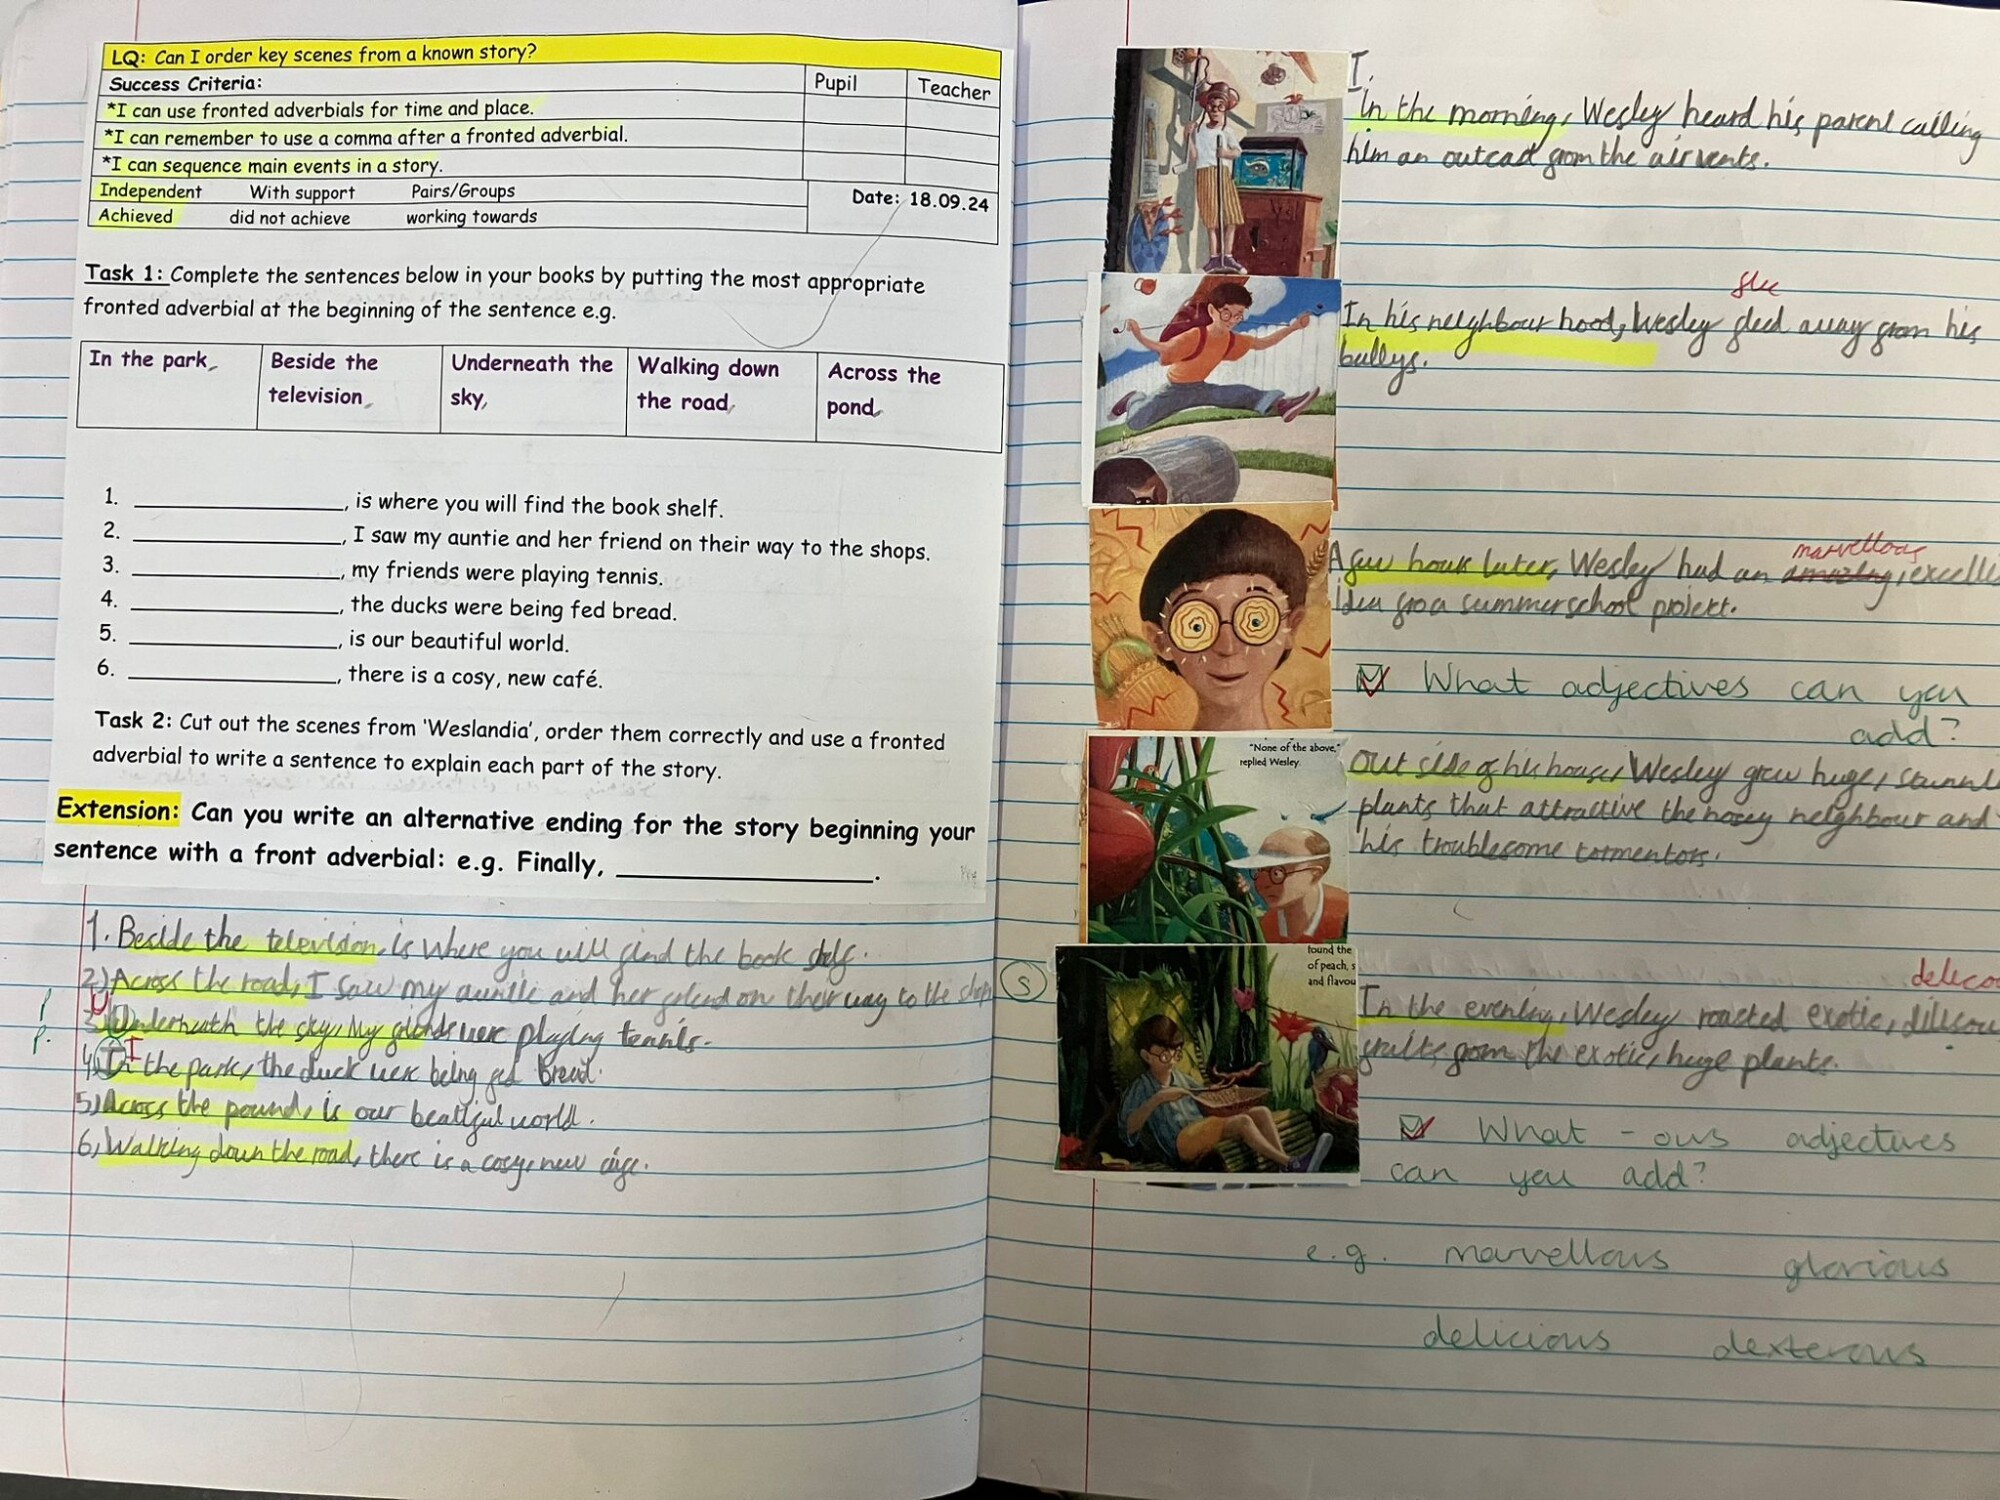 LQ: Can I order key scenes from a known story?
Success Criteria:
Pupil
Teacher
*I can use fronted adverbials for time and place.
*I can remember to use a comma after a fronted adverbial.
*I can sequence main events in a story.
Independent With support Pairs/Groups
Achieved did not achieve working towards
Date: 18.09.24
Task 1: Complete the sentences below in your books by putting the most appropriate
fronted adverbial at the beginning of the sentence e.g.
In the park,
Beside the
television,
Underneath the
sky,
Walking down
the road,
Across the
pond,
1. ____________, is where you will find the book shelf.
2. ____________, I saw my auntie and her friend on their way to the shops.
3. ____________, my friends were playing tennis.
4. ____________, the ducks were being fed bread.
5. ____________, is our beautiful world.
6. ____________, there is a cosy, new café.
Task 2: Cut out the scenes from 'Weslandia', order them correctly and use a fronted
adverbial to write a sentence to explain each part of the story.
Extension: Can you write an alternative ending for the story beginning your
sentence with a front adverbial: e.g. Finally, ____________.
1. Beside the television, is where you will find the book shelf.
2) Across the road, I saw my auntie and her on their way to the shops
P.
3) Underneath the sky, My were playing tennis.
4) In the park, the duck were being fed bread.
5) Across the pound, is our world.
6, Walking down the road, there is a cosy, new
I.
In the morning, Wesley heard his parent calling
him an from the air vents.
flee
In his neighbour hood, Wesley fleed away from his
bullys.
marvellous
A few hours later, Wesley had an amazing,
idea summer school projekt.
What adjectives can you
add?
"None of the above,"
replied Wesley.
Out side of his house, Wesley grew huge,
plants that attractive the nosey neighbour and
his troublesome tormentors.
found the
of peach, s
and flavou
S
In the evening, Wesley roasted exotic,
fruits from the exotic, huge plants.
What -ous adjectives
can you add?
e.g. marvellous glorious
delicious dexterous